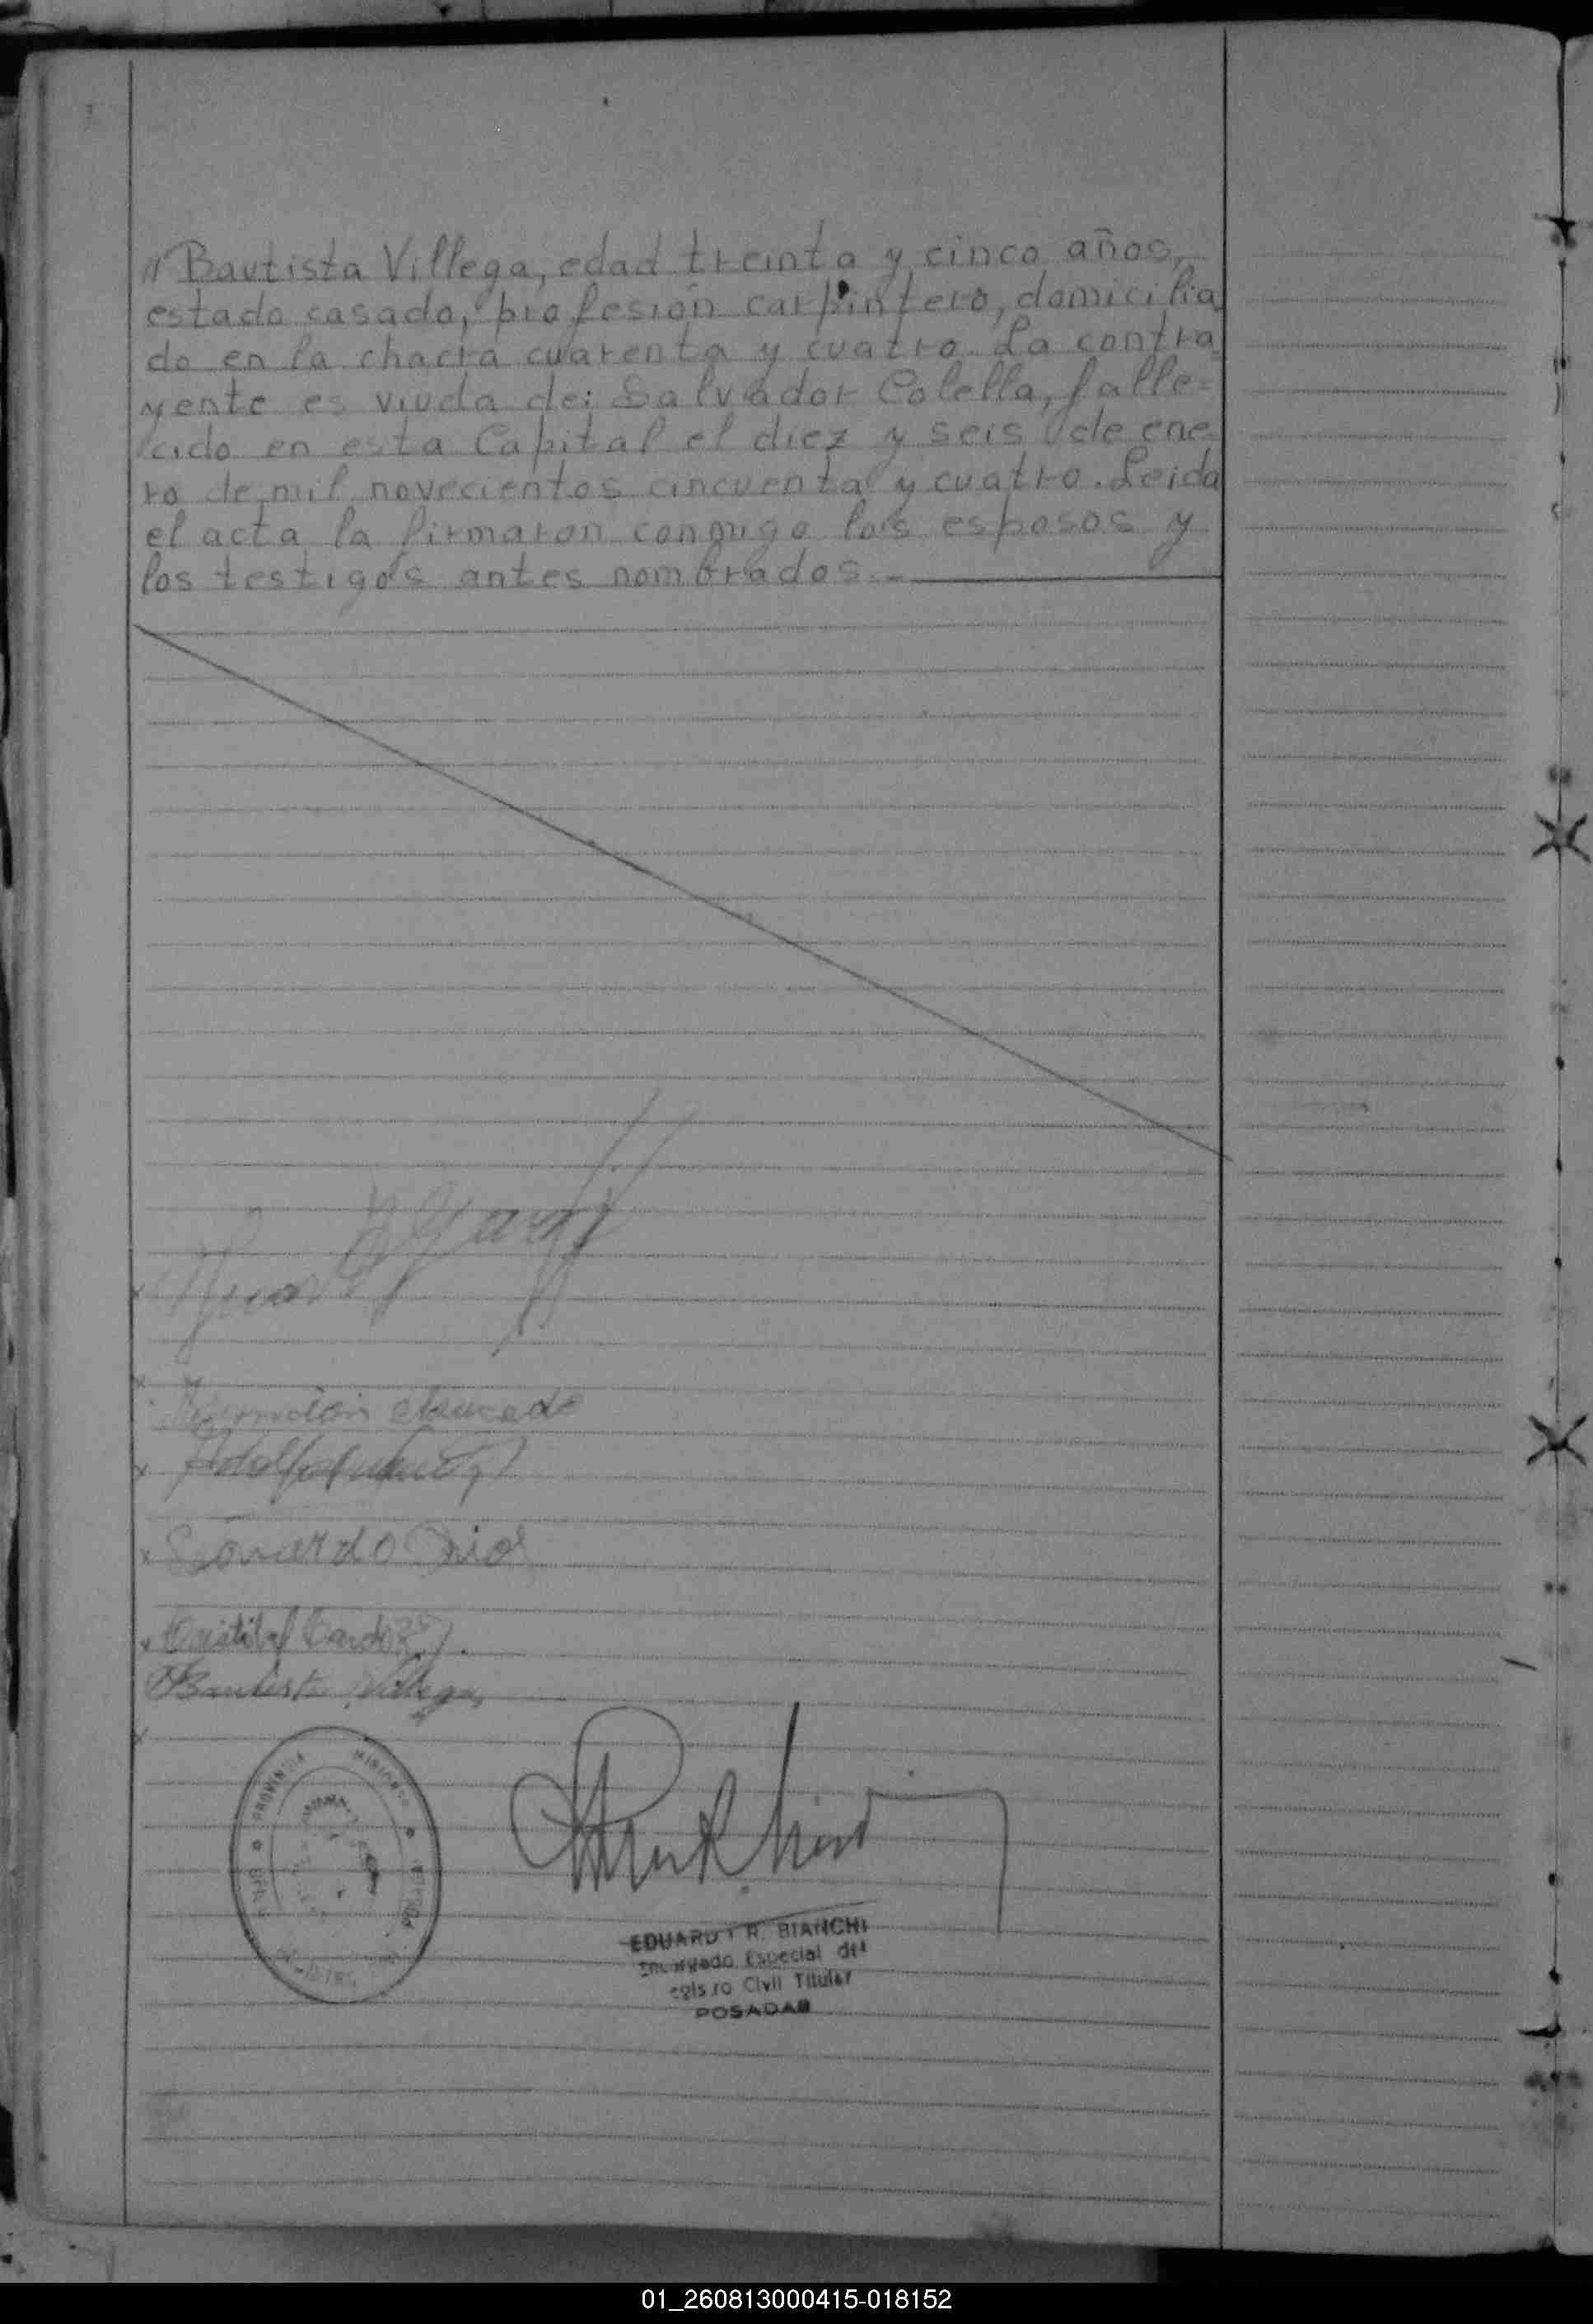 " Bautista Villega, edad treinta y cinco años,
estado casado, profesión carpintero, domicilia
do en la chacra cuarenta y cuatro. La contra
yente es viuda de: Salvador Colella, falle=
cido en esta Capital el diez y seis de ene
ro de mil novecientos cincuenta y cuatro. Leida
el acta la firmaron conmigo los esposos y
los testigos antes nombrados.-
Eduardo Rios
Cristobal Cardozo
Bautista Villegas
PROVINCIA MISIONES
POSADAS
EDUARDO R. BIANCHI
Encargado Especial del
egistro Civil Titular
POSADAS
01_260813000415-018152